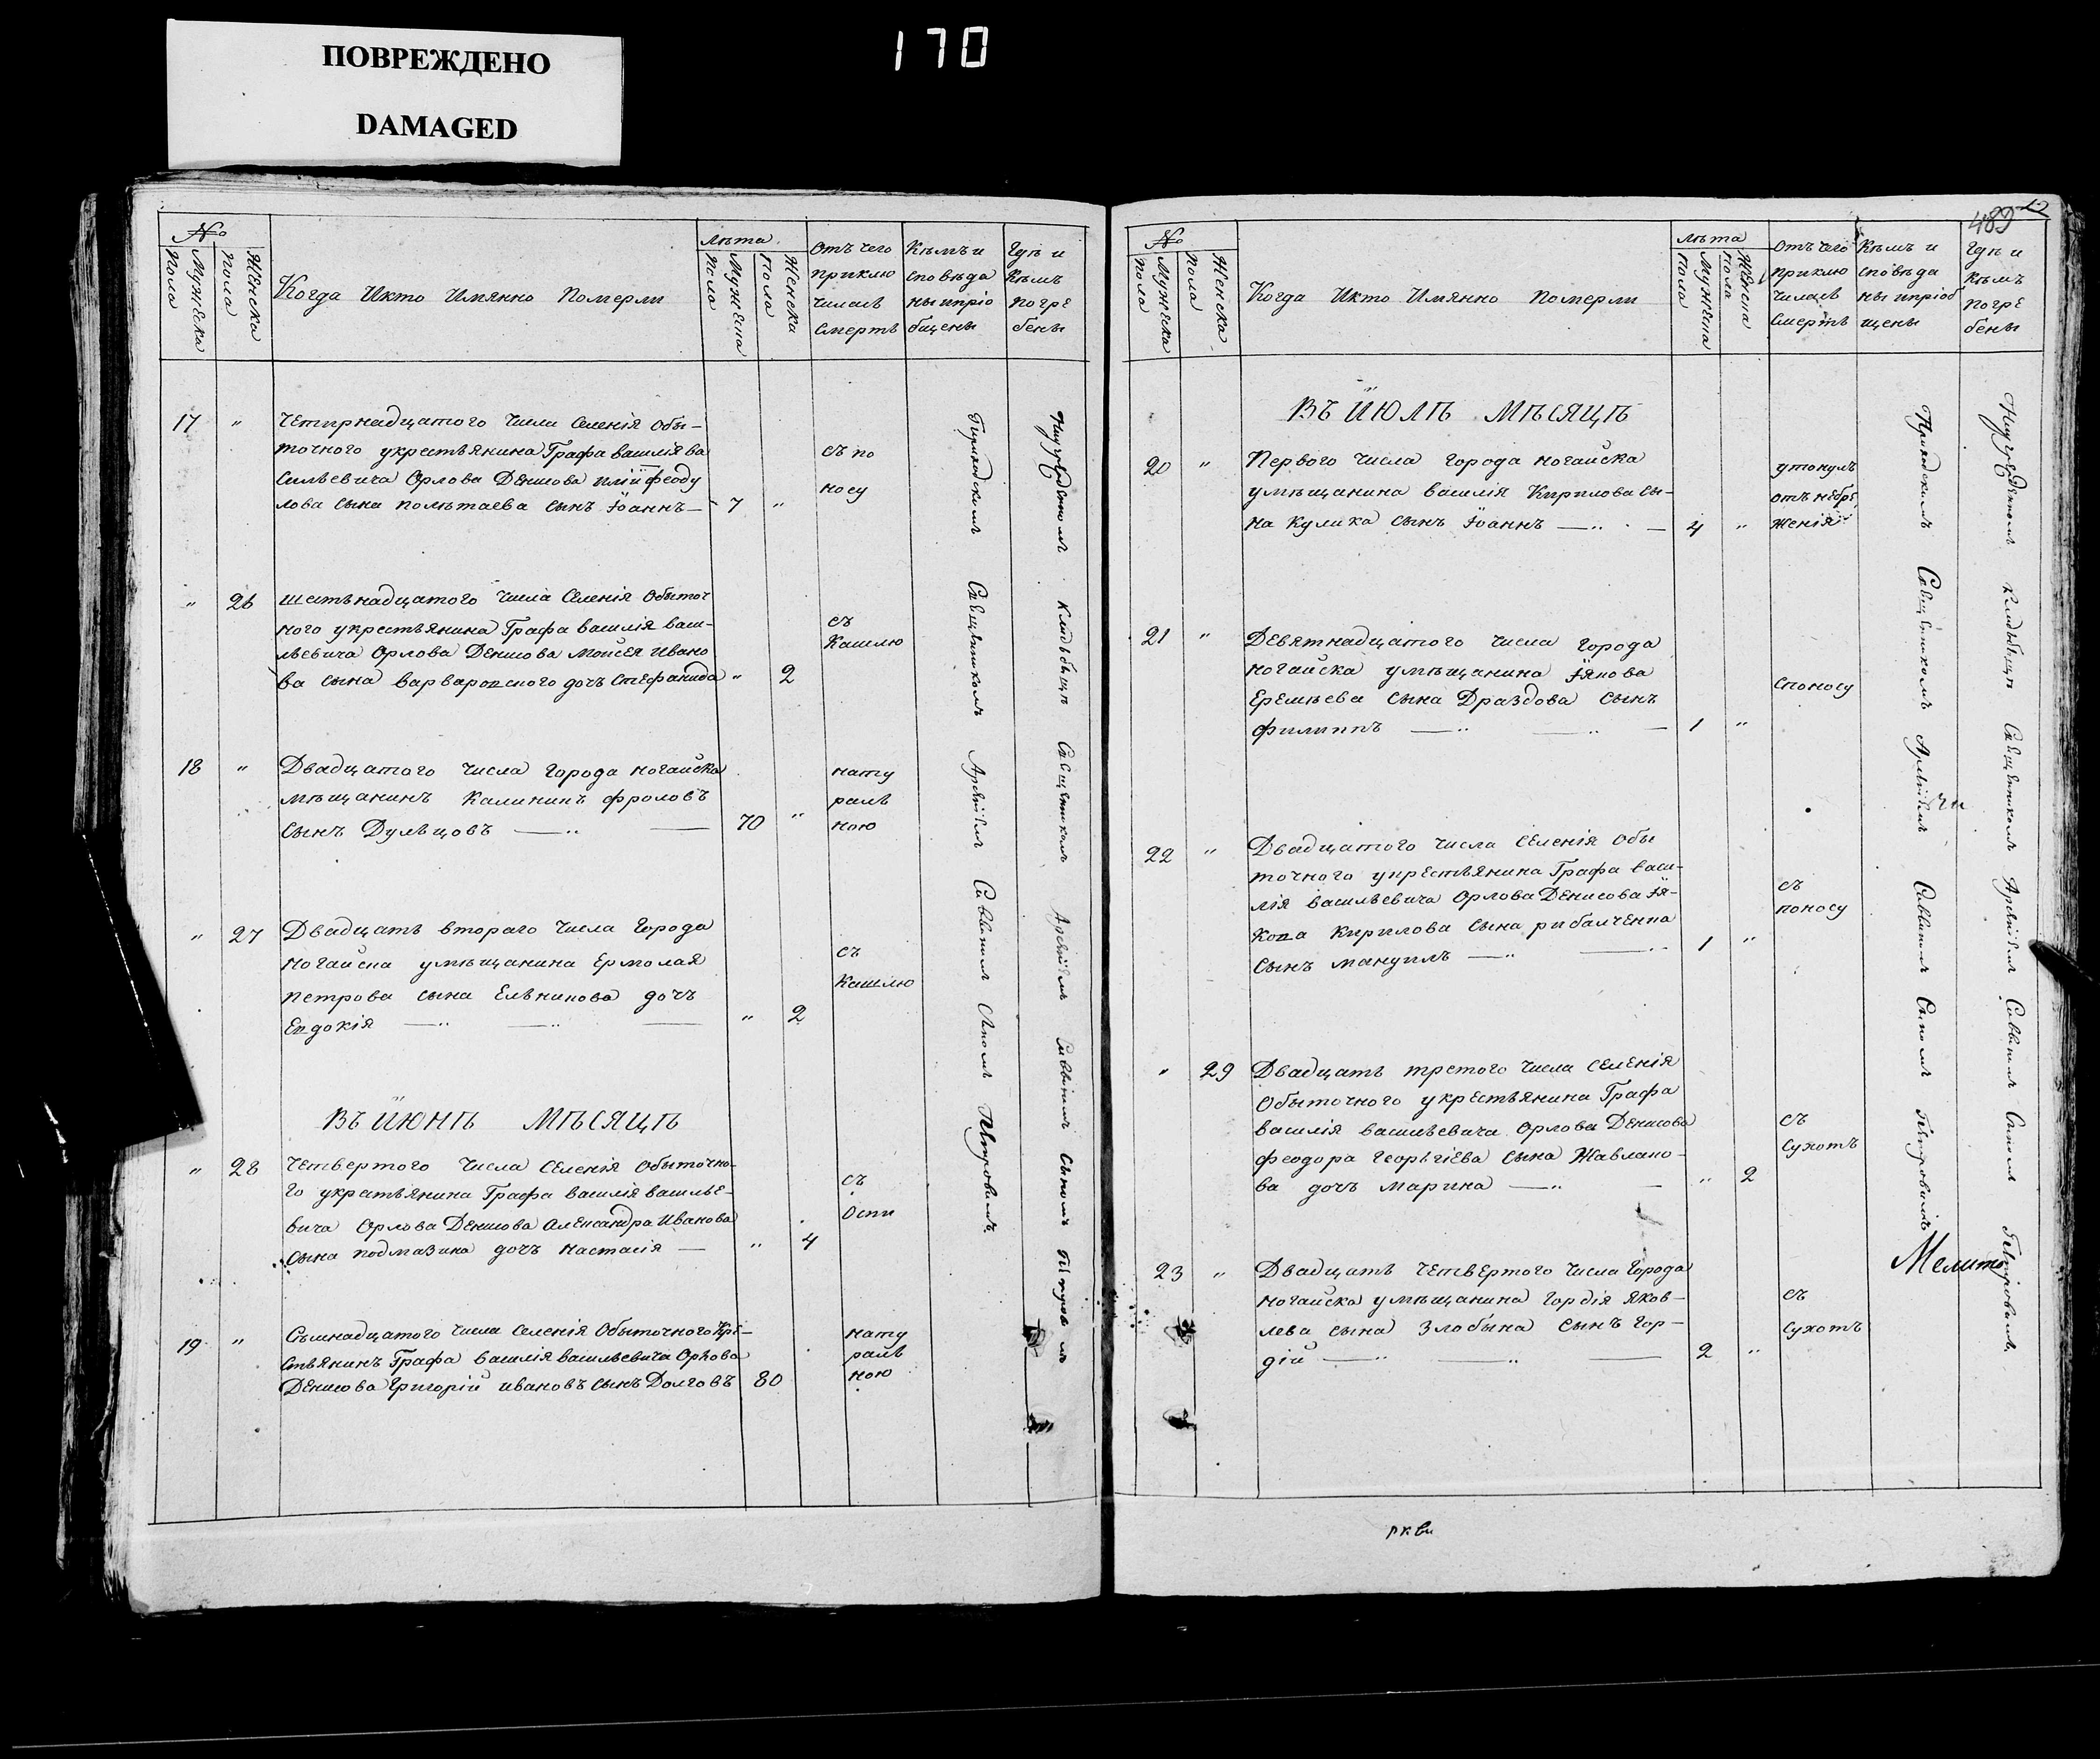 ПОВРЕЖДЕНО
DAMAGED
170
№
Мужеска пола
Женска пола
Когда Икто Имянно Померли
лѣта
Мужеска пола
Женска пола
Отъ чего приклю чиласъ смертъ
Кѣмъ и сповѣда ны ипріо бщены
Гдѣ и Кѣмъ погре бены
17 " Четирнадцатого числа селенія Обы-
точного укрестьянина Графа василія ва
сильевича Орлова Денисова феоду
лова сына полѣтаева сынъ Іоаннъ — 7 "
съ по
носу
" 26 шестьнадцатого числа селенія Обыточ
ного укрестьянина Графа василія васи-
льевича Орлова Денисова Моисея Ивано
ва сына варваровского дочъ Стефанида " 2
съ
Кашлю
18 " Двадцатого числа города ногайска
мѣщанинъ Калининъ фроловъ
сынъ Дульцовъ — " — 70 "
нату
раль
ною
" 27 Двадцать втораго числа города
ногайска умѣщанина Ермолая
петрова сына Ельникова дочъ
Евдокія — " — " — " 2
съ
Кашлю
ВЪ ІЮНѢ МѢСЯЦѢ
" 28 четвертого числа селенія Обыточно-
го укрстьянина Графа василія василье-
вича Орлова Денисова Александра Иванова
сына подмазина дочъ настасія — " 4
съ
оспи
19 " Съмнадцатого числа селенія Обыточного Кре-
стьянинъ Графа василія васильевича Орлова
Денисова Григорій ивановъ сынъ Долговъ 80
нату
раль
ною
Священникомъ Петровимъ
кладбыщѣ Священникомъ
489
№
Мужеска пола
Женска пола
Когда Икто Имянно померли
лѣта
Мужеска пола
Женска пола
Отъ чего приклю чиласъ смертъ
Кѣмъ и сповѣда ны ипріоб щены
Гдѣ и кѣмъ погре бены
ВЪ ІЮЛѢ МѢСЯЦѢ
20 " Первого числа города ногайска
умѣщанина василія Кирилова сы-
на Кулика сынъ Іоаннъ — " — 4 "
утонулъ
отъ небре
женія
21 " Девятнадцатого числа города
ногайска умѣщанина Іякова
Еремѣева сына Драздова сынъ
филиппъ — " — " — 1 "
споносу
22 " Двадцатого числа селенія Обы
точного укрестьянина Графа васи-
лія васильевича Орлова Денисова Ія-
кова Кирилова сына рибалченка
сынъ мануилъ — " — " 1 "
съ
поносу
" 29 Двадцать третого числа селенія
Обыточного укрестьянина Графа
василія васильевича Орлова Денисова
феодора георгіева сына Жавлако-
ва дочъ марина — " — " 2
съ
сухотъ
23 " Двадцать четвертого числа города
ногайска умѣщанина гордія яков-
лева сына Злобына сынъ гор-
дій — " — " — 2 "
съ
сухотъ
Приходскимъ Священникомъ Петровимъ
кладбыщѣ Священникомъ Петровимъ